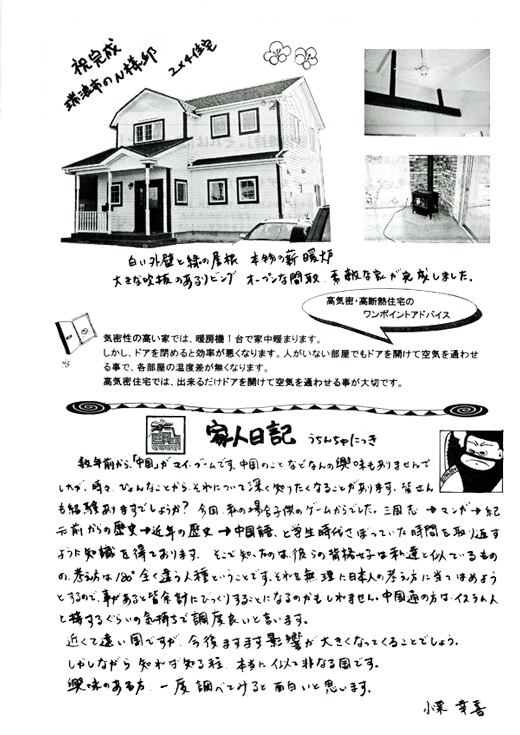 祝完成
瑞浪市のN様邸
2×4住宅
白い外壁と緑の屋根 本物の薪暖炉
大きな吹抜のあるリビング オープンな間取 素敵な家が完成しました。
高気密・高断熱住宅の
ワンポイントアドバイス
気密性の高い家では、暖房機1台で家中暖まります。
しかし、ドアを閉めると効率が悪くなります。人がいない部屋でもドアを開けて空気を通わせ
る事で、各部屋の温度差が無くなります。
高気密住宅では、出来るだけドアを開けて空気を通わせる事が大切です。
家人日記 うちんちゅにっき
数年前から、「中国」がマイ・ブームです。中国のことなどなんの興味もありませんで
したが、時々、ひょんなことから、それについて深く知りたくなることがあります。皆さん
も経験ありますでしょうか? 今回、私の場合子供のゲームからでした。三国志→マンガ→紀
元前からの歴史→近年の歴史→中国語、と学生時代さぼっていた時間を取り返す
ように知識を得てあります。そこで知ったのは、彼らの皆様は私達と似ているもの
の、考え方は180°全く違う人種ということです。それを無理に日本人の考え方に当てはめよう
とするので、事があると皆余計にびっくりすることになるのかもしれません。中国通の方は、イスラム人
と接するぐらいの気持ちで調度良いと言います。
近くて遠い国ですが、今後ますます影響が大きくなってくることでしょう。
しかしながら 知れば知る程、本当に似て非なる国です。
興味のある方、一度調べてみると面白いと思います。
小栗 幸喜